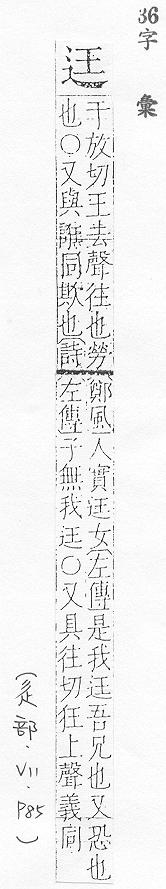 36字彙
迋
于放切王去聲往也勞
也○又與誑同欺也(詩)
(鄭風)人實迋女(左傳)是我迋吾兄也又恐也
(左傳)子無我迋○又具往切狂上聲義同
(辵部·VII·P85)